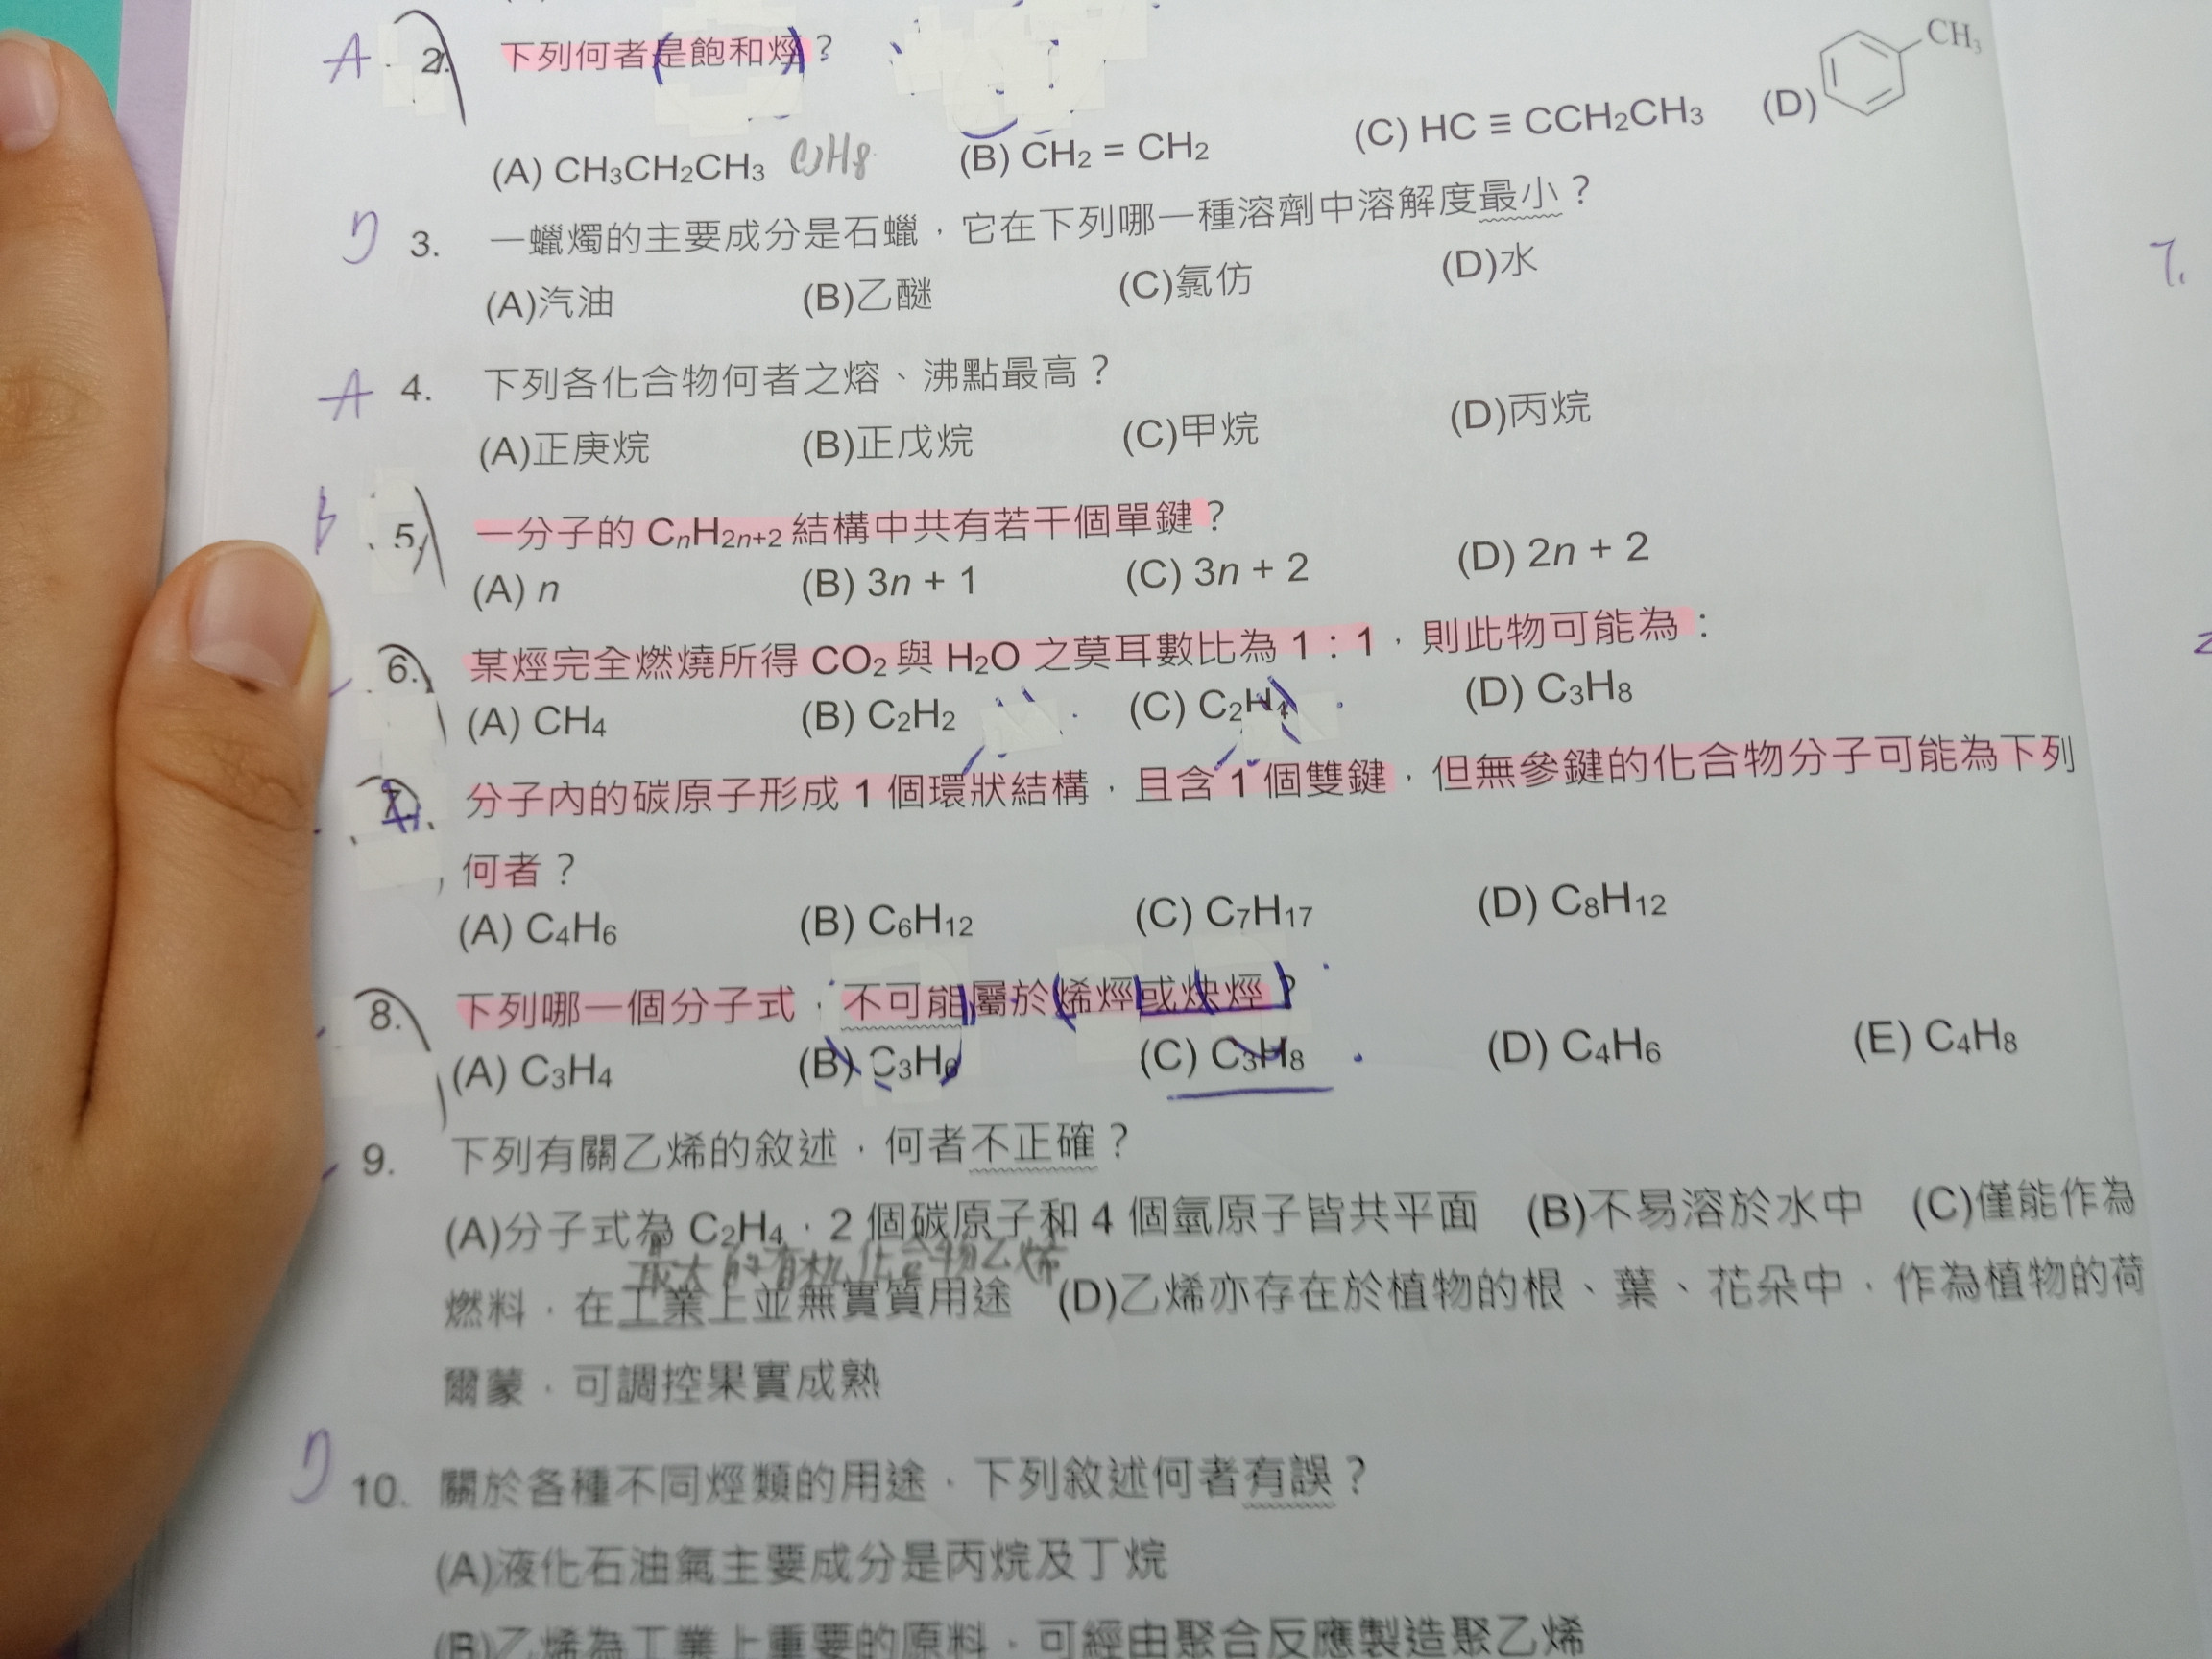 A 2. 下列何者是飽和烴？
(A) CH3CH2CH3 C3H8 (B) CH2 = CH2 (C) HC ≡ CCH2CH3 (D) CH3
D 3. 一蠟燭的主要成分是石蠟，它在下列哪一種溶劑中溶解度最小？
(A)汽油 (B)乙醚 (C)氯仿 (D)水
A 4. 下列各化合物何者之熔、沸點最高？
(A)正庚烷 (B)正戊烷 (C)甲烷 (D)丙烷
B 5. 一分子的 CnH2n+2 結構中共有若干個單鍵？
(A) n (B) 3n + 1 (C) 3n + 2 (D) 2n + 2
6. 某烴完全燃燒所得 CO2 與 H2O 之莫耳數比為 1：1，則此物可能為：
(A) CH4 (B) C2H2 (C) C2H4 (D) C3H8
7. 分子內的碳原子形成 1 個環狀結構，且含 1 個雙鍵，但無參鍵的化合物分子可能為下列
何者？
(A) C4H6 (B) C6H12 (C) C7H17 (D) C8H12
8. 下列哪一個分子式，不可能屬於烯烴或炔烴？
(A) C3H4 (B) C3H6 (C) C3H8 (D) C4H6 (E) C4H8
9. 下列有關乙烯的敘述，何者不正確？
(A)分子式為 C2H4，2 個碳原子和 4 個氫原子皆共平面 (B)不易溶於水中 (C)僅能作為
最大的有机化合物乙烯
燃料，在工業上並無實質用途 (D)乙烯亦存在於植物的根、葉、花朵中，作為植物的荷
爾蒙，可調控果實成熟
D 10. 關於各種不同烴類的用途，下列敘述何者有誤？
(A)液化石油氣主要成分是丙烷及丁烷
(B)乙烯為工業上重要的原料，可經由聚合反應製造聚乙烯
7.